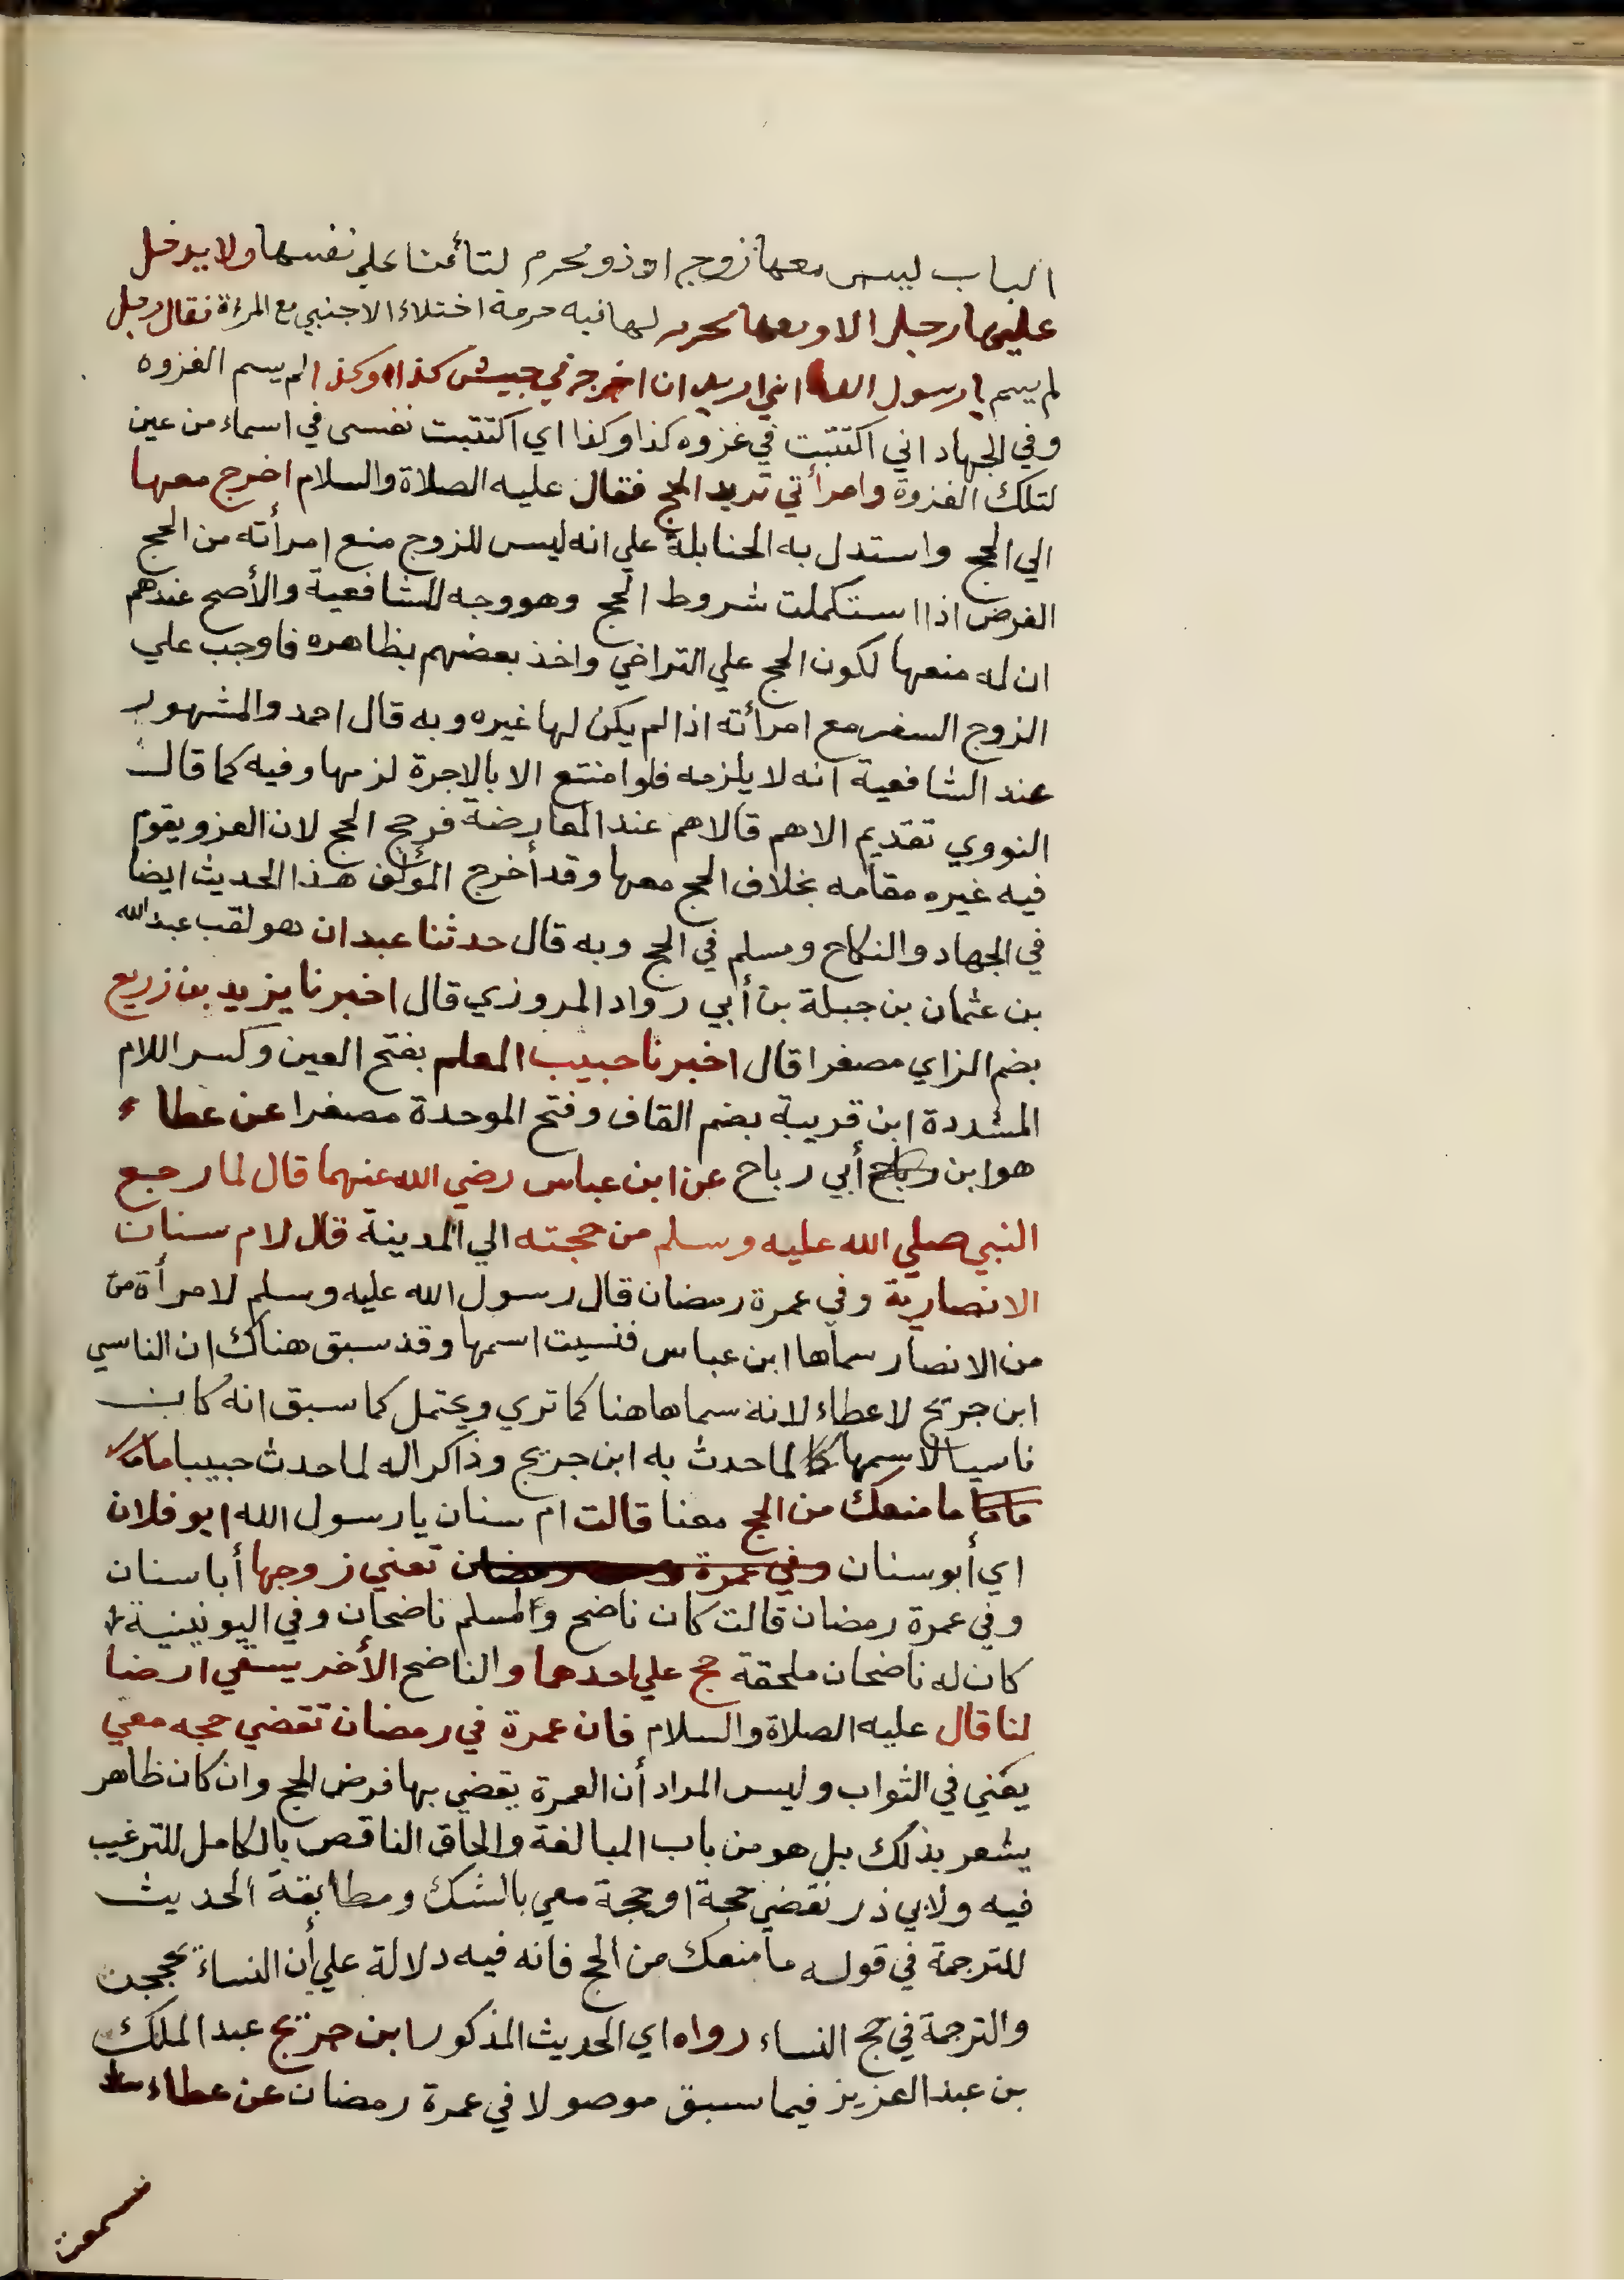 الباب ليس معها زوج او ذو محرم لتأمنا على نفسها ولا يدخل
عليها رجل الا ومعها محرم لها فيه حرمة اختلاء الاجنبي مع المرءة فقال رجل
لم يسم يا رسول الله اني اريد ان اخرج في جيش كذا وكذا لم يسم الغزوه
وفي الجهاد اني اكتتبت في غزوه كذا وكذا اي اكتتبت نفسى في اسماء من عين
لتلك الغزوة وامرأتي تريد الحج فقال عليه الصلاة والسلام اخرج معها
الي الحج واستدل به الحنابلة علي انه ليس للزوج منع امرأته من الحج
الفرض اذا استكملت شروط الحج وهو وجه للشافعية والأصح عندهم
ان له منعها لكون الحج علي التراخي واخذ بعضهم بظاهره فاوجب علي
الزوج السفر مع امرأته اذا لم يكن لها غيره وبه قال احمد والمشهور
عند الشافعية انه لا يلزمه فلو امتنع الا بالاجرة لزمها وفيه كما قال
النووي تقديم الاهم فالاهم عند المعارضة فرجح الحج لان الغزو يقوم
فيه غيره مقامه بخلاف الحج معها وقد أخرج المؤلف هذا الحديث ايضا
في الجهاد والنكاح ومسلم في الحج وبه قال حدثنا عبدان هو لقب عبد الله
بن عثمان بن جبلة بن أبي رواد المروزي قال اخبرنا يزيد بن زريع
بضم الزاي مصغرا قال اخبرنا حبيب المعلم بفتح العين وكسر اللام
المشددة ابن قريبة بضم القاف وفتح الموحدة مصغرا عن عطاء
هو ابن رباح أبي رباح عن ابن عباس رضي الله عنهما قال لما رجع
النبي صلي الله عليه وسلم من حجته الي المدينة قال لام سنان
الانصارية وفي عمرة رمضان قال رسول الله عليه وسلم لامرأة من
من الانصار سماها ابن عباس فنسيت اسمها وقد سبق هناك ان الناسي
ابن جريج لا عطاء لانه سماها هنا كما تري ويحتمل كما سبق انه كان
ناسيا لاسمها لما حدث به ابن جريج وذاكرا له لما حدث حبيبا
ما منعك من الحج معنا قالت ام سنان يا رسول الله ابو فلان
اي أبو سنان وفي عمرة رمضان تعني زوجها أبا سنان
وفي عمرة رمضان قالت كان ناضح ولمسلم ناضحان وفي اليونينية
كان له ناضحان ملحقة حج علي احدهما والناضح الأخر يسقي ارضا
لنا قال عليه الصلاة والسلام فان عمرة في رمضان تقضي حجه معي
يعني في الثواب وليس المراد أن العمرة يقضي بها فرض الحج وان كان ظاهر
يشعر بذلك بل هو من باب المبالغة والحاق الناقص بالكامل للترغيب
فيه ولابي ذر تقضي حجة او حجة معي بالشك ومطابقة الحديث
للترجمة في قوله ما منعك من الحج فانه فيه دلالة علي أن النساء يحججن
والترجمة في حج النساء رواه اي الحديث المذكور ابن جريج عبد الملك
بن عبد العزيز فيما سبق موصولا في عمرة رمضان عن عطاء
سمعت